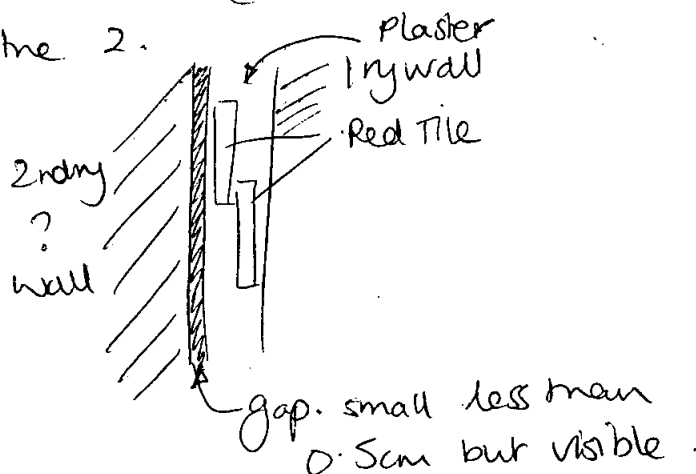 the 2.
Plaster
1rywall
Red Tile
2ndry
?
wall
gap. small less than
0.5cm but visible.